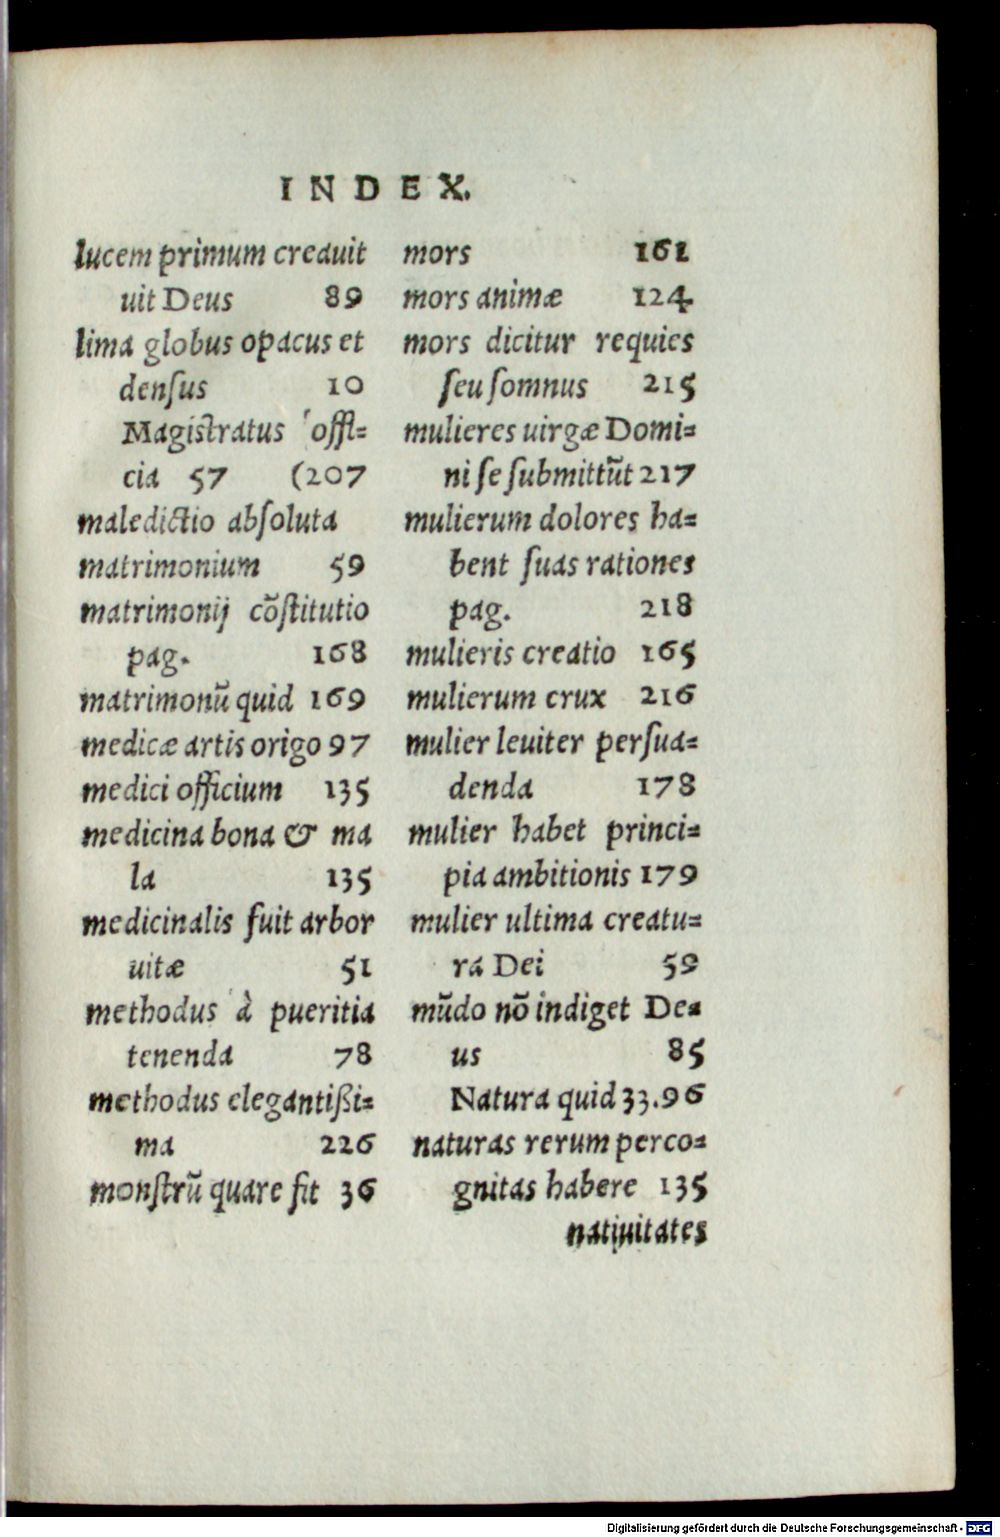 INDEX.
lucem primum creauit
uit Deus 89
lima globus opacus et
denſus 10
Magiſtratus offi=
cia 57 (207
maledictio abſoluta
matrimonium 59
matrimonij cōſtitutio
pag. 168
matrimonū quid 169
medicæ artis origo 97
medici officium 135
medicina bona & ma
la 135
medicinalis fuit arbor
uitæ 51
methodus à pueritia
tenenda 78
methodus elegantißi=
ma 226
monſtrū quare fit 36
mors 161
mors animæ 124
mors dicitur requies
ſeu ſomnus 215
mulieres uirgæ Domi=
ni ſe ſubmittūt 217
mulierum dolores ha=
bent ſuas rationes
pag. 218
mulieris creatio 165
mulierum crux 216
mulier leuiter perſua=
denda 178
mulier habet princi=
pia ambitionis 179
mulier ultima creatu=
ra Dei 59
mūdo nō indiget De=
us 85
Natura quid 33.96
naturas rerum perco=
gnitas habere 135
natiuitates
Digitalisierung gefördert durch die Deutsche Forschungsgemeinschaft - DFG